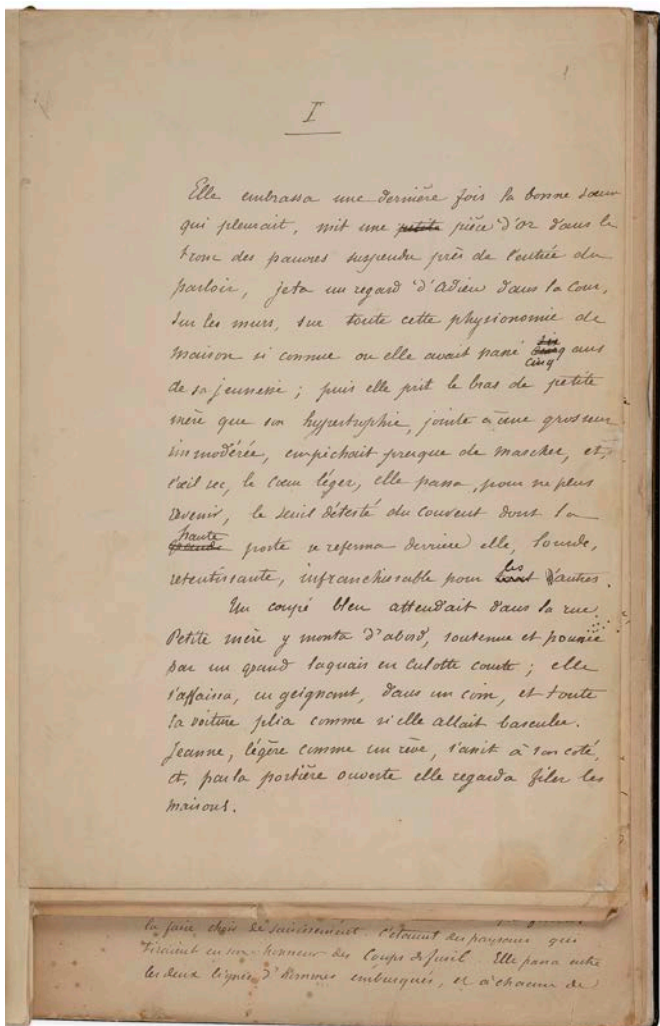 I
Elle embrassa une dernière fois la bonne sœur
qui pleurait, mit une petite pièce d'or dans le
tronc des pauvres suspendu près de l'entrée du
parloir, jeta un regard d'adieu dans la cour,
sur les murs, sur toute cette physionomie de
maison si connue ou elle avait passé cinq ans
de sa jeunesse ; puis elle prit le bras de petite
mère que son hypertrophie, jointe à une grosseur
immodérée, empêchait presque de marcher, et,
l'œil sec, le cœur léger, elle passa, pour ne plus
revenir, le seuil détesté du couvent dont la
haute
grande porte se referma derrière elle, lourde,
retentissante, infranchissable pour les d'autres.
Un coupé bleu attendait dans la rue.
Petite mère y monta d'abord, soutenue et poussée
par un grand laquais en culotte courte ; elle
s'affaissa, en geignant, dans un coin, et toute
la voiture plia comme si elle allait basculer.
Jeanne, légère comme un rêve, s'assit à son coté,
et, par la portière ouverte elle regarda filer les
maisons.
la faire choir de saisissement. C'étaient des paysans qui
tiraient en son honneur des coups de fusil. Elle passa entre
les deux lignes d'hommes embusqués, et à chacun de